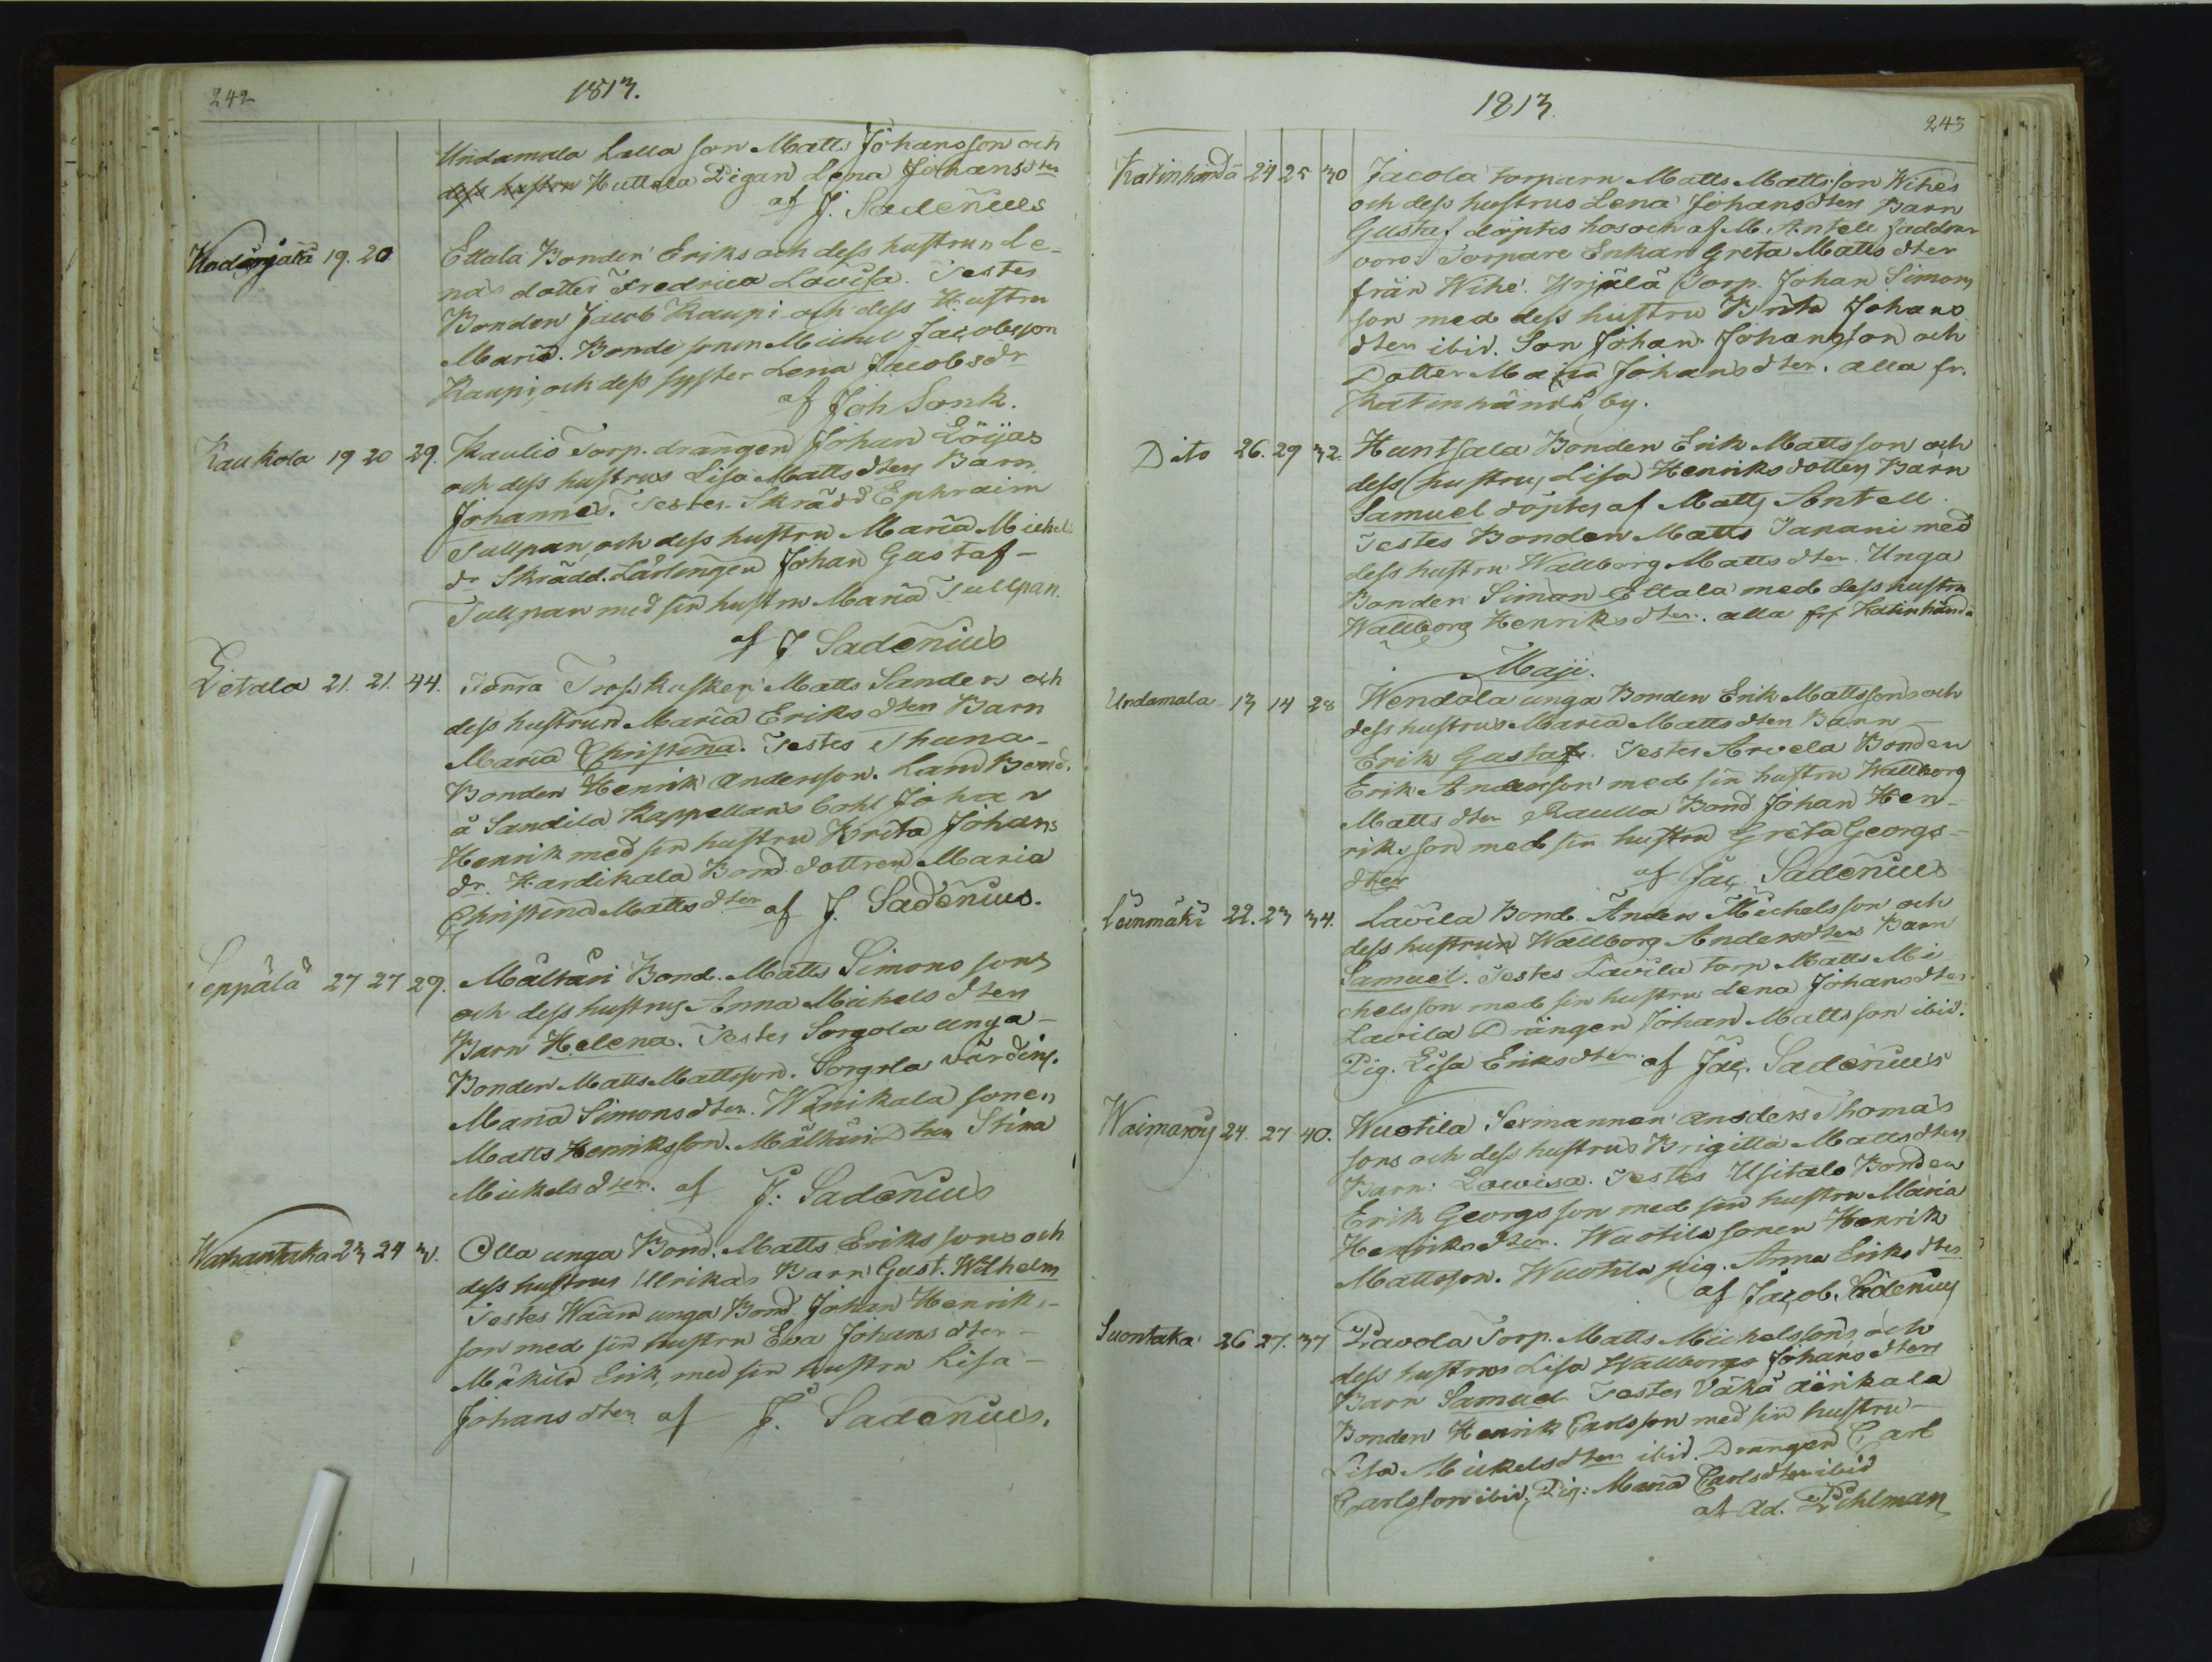 242
1813.
Undamala Lalla son Matts Johansson och
dess hustru Huttala Pigan Lena Johansdter
af J. Sadenius
Kodarjala 19. 20 Ettala Bonden Eriks och dess hustrun Le-
nas dotter Fredrica Lovisa. Testes
Bonden Jacob Kaupi och dess Hustru
Maria. Bonde sonen Michel Jacobsson
Kaupi, och dess syster Lena Jacobsdr
af Joh Sonk.
Kaukola 19 20 29. Kaulio Torp. drängen Johan Löijas
och dess hustrus Lisa Mattsdters Barn
Johannes. Testes. Skrädd Ephraim
Tullpan, och dess hustru Maria Michels
dr Skrädd. Lärlingen Johan Gustaf-
Tullpan med sin hustru Maria Tullpan.
af J Sadenius
Lietala 21. 21. 44. Torra Trosskusken Matts Sanders och
dess hustrun Maria Eriksdters Barn
Maria Christina. Testes Thuna-
Bonden Henrik Andersson. Land Bond.
å Sandila Kappellans bohl Johan
Henrik med sin hustru Brita Johans
dr. Hardikala Bond dottren Maria
Christina Mattsdter af J. Sadenius.
Seppälä 27 27 29. Mälkäri Bond. Matts Simons sons
och dess hustrus Anna Michelsdters
Barn Helena. Testes Sorgola unga-
Bonden Matts Mattsson. Sorgola värdin.
Maria Simonsdter. Winikala sonen
Matts Henriksson. Mälkäri Dtren Stina
Mickelsdter. af J. Sadenius
Wahantaka 23 24 30. Olla unga Bond. Matts Eriks sons och
dess hustrus Ulrikas Barn Gust. Wilhelm
Testes Wäärä unga Bond Johan Henriks-
son med sin hustru Eva Johansdter-
Mäkilä Erik, med sin hustru Lisa-
Johansdter af J. Sadenius.
1813.
243
Katinhända 24 25 30 Jacola torparn Matts Mattsson Wihes
och dess hustrus Lena Johansdters Barn
Gustaf döptes hos och af M. Antell faddrar
voro: Torpare Enkan Greta Mattsdter
från Wihe. Yrjälä Torp. Johan Simons
son med dess hustru Brita Johans
dter ibid. Son Johan Johansson och
Dotter Maria Johansdter. alla fr.
Katinhändä by.
Dito 26. 29 32. Huntsala Bonden Erik Mattsson och
dess hustrus Lisa Henriksdotters Barn
Samuel döptes af Matts Antell.
Testes Bonden Matts Tapani med
dess hustru Wallborg Mattsdter. Unga
Bonden Simon Ettala med dess hustru
Wallborg Henriksdter. alla frf Katinhända
Maji.
Undamala 13 14 28 Wendola unga Bonden Erik Mattssons och
dess hustrus Maria Mattsdters Barn-
Erik Gustaf. Testes Arvela Bonden
Erik Andersson med sin hustru Wallborg
Mattsdter Raulla Bond Johan Hen-
riksson med sin hustru Greta Georgs-
dter af Jac. Sadenius
Leinmäki 22. 23 34. Lavila Bond. Anders Michelsson och
dess hustrun Wallborg Andersdters Barn
Samuel. Testes Lavila torp Matts Mi
chelsson med sin hustru Lena Johansdter.
Lavila Drängen Johan Mattsson ibid.
Pig. Lisa Eriksdter. af Jac. Sadenius
Waimaroij 24. 27 40. Wuotila Sexmannen Anders Thomas
sons och dess hustrus Brigitta Mattsdters
Barn: Lowisa. Testes Usitalo Bonden
Erik Georgsson med sin hustru Maria
Henriksdter. Wuotila sonen Henrik
Mattsson. Wuotila pig. Anna Eriksdter
af Jacob. Sadenius
Suontaka 26 27. 37 Pavola Torp. Matts Michelssons och
dess hustrus Lisa Wallborgs Johansdters
Barn Samuel Testes Vähä äärikala
Bonden Henrik Carlsson med sin hustru-
Lisa Mickelsdter ibid. Drängen Carl
Carlsson ibid, Pig: Maria Carlsdter ibid
af Ad. Pihlman